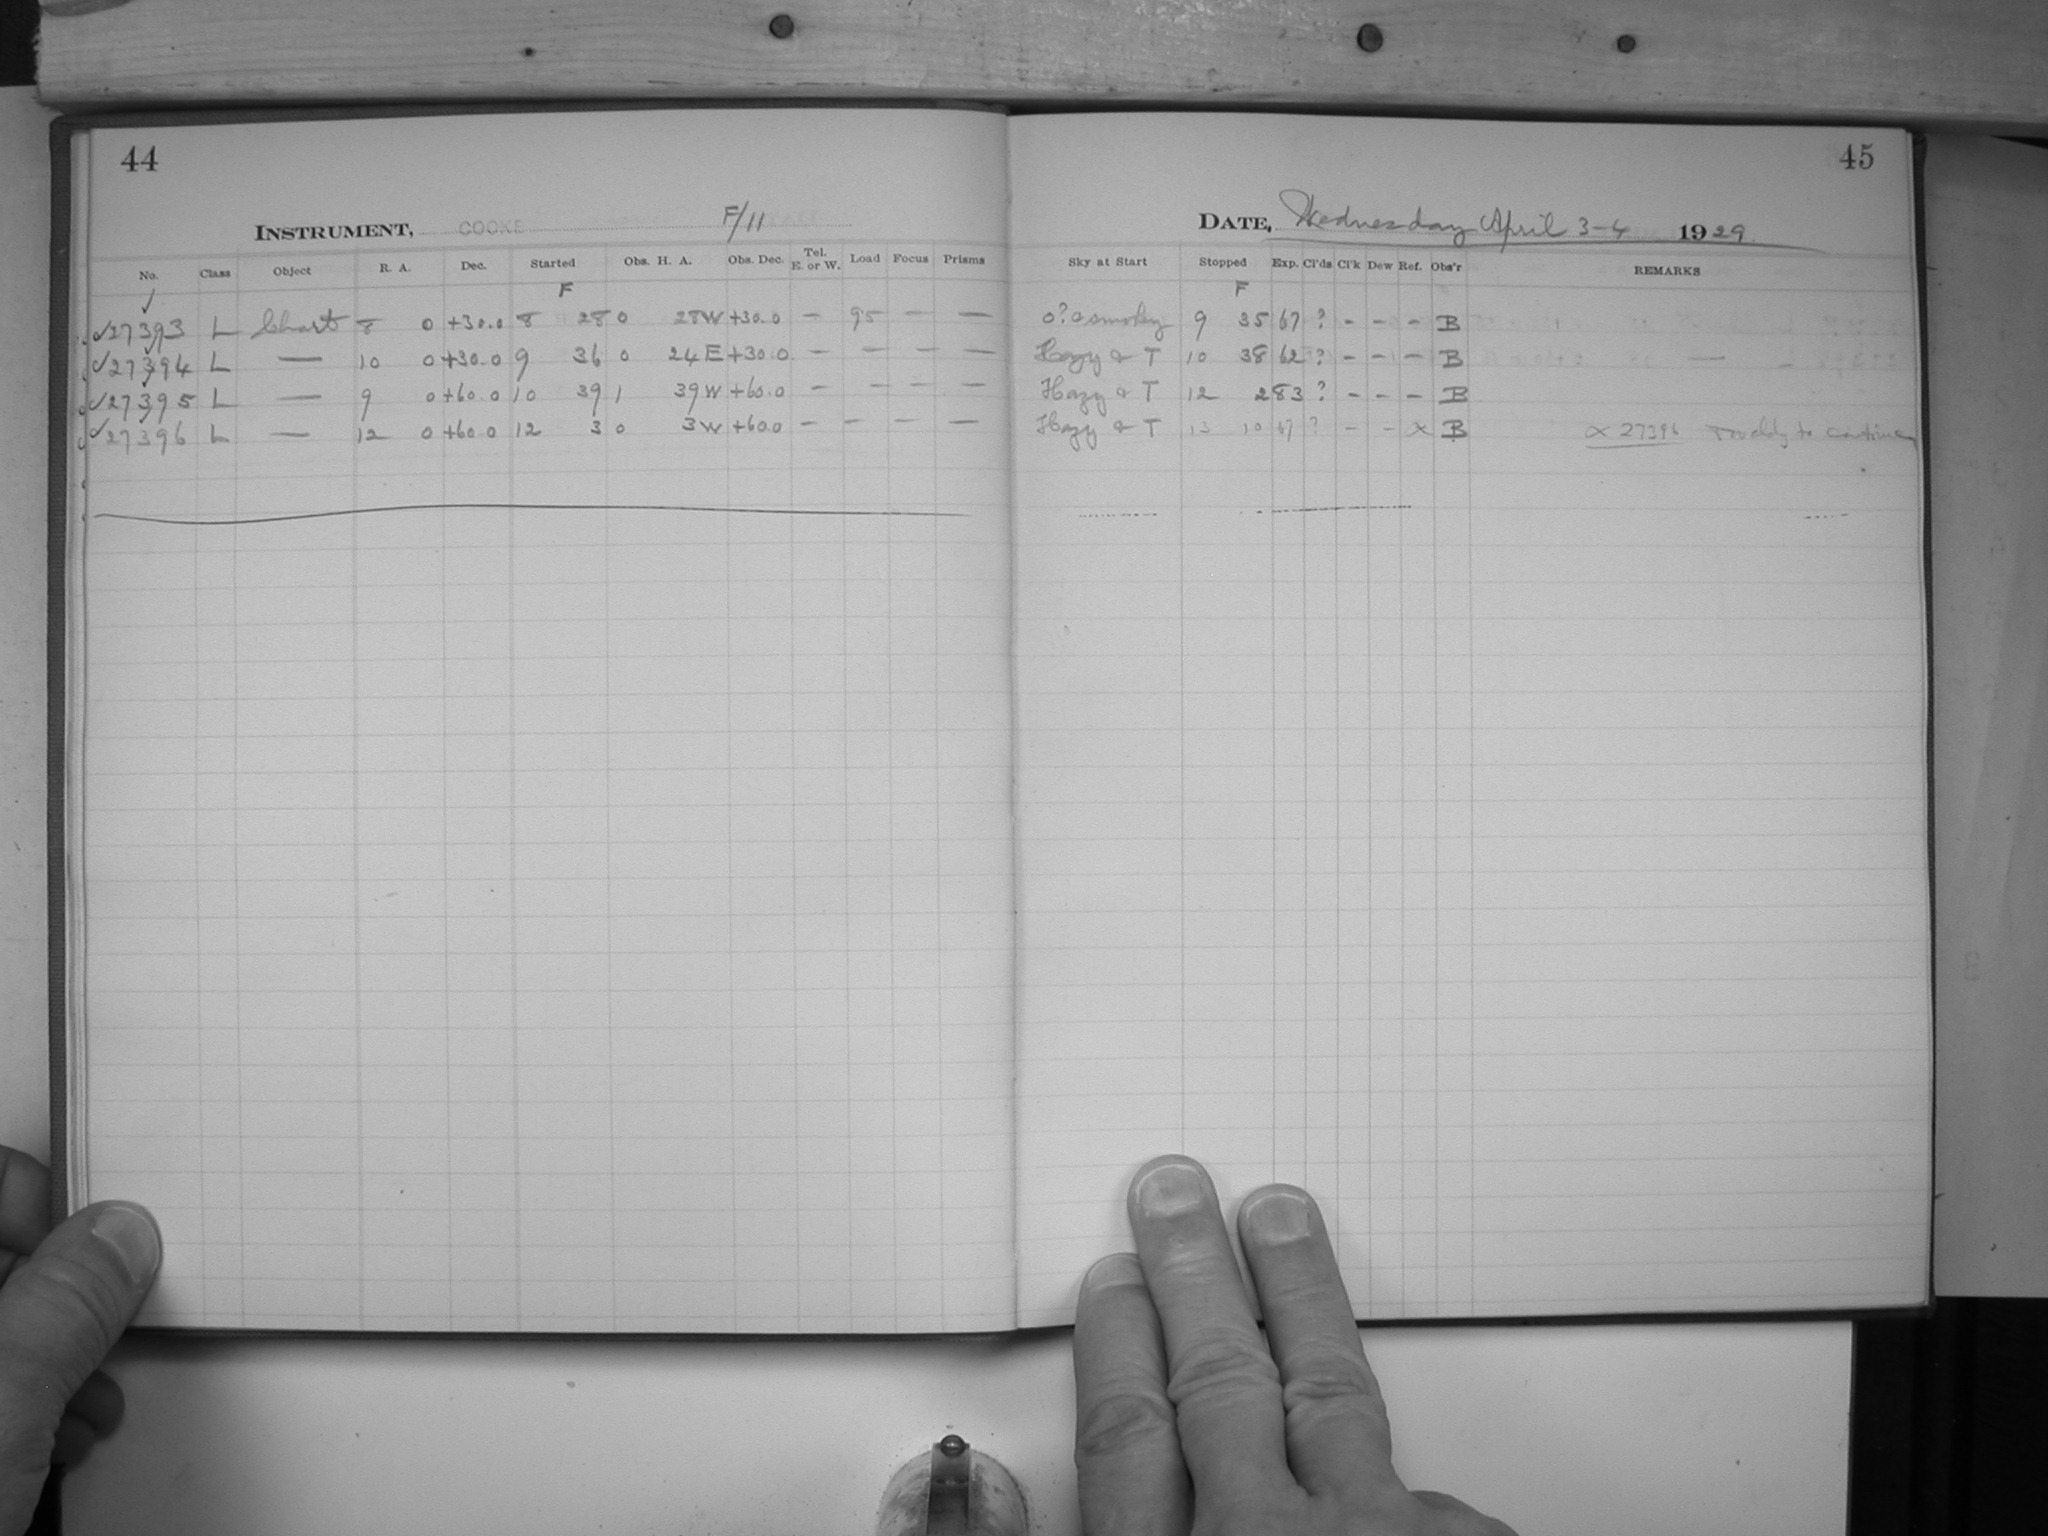 44
INSTRUMENT, COOKE F/11
No. Class Object R. A. Dec. Started Obs. H. A. Obs. Dec. Tel. E. or W. Load Focus Prisms
F
✓27393 L Chart 8 0 +30.0 8 28 0 28W +30.0 – 95 — —
✓27394 L — 10 0 +30.0 9 36 0 24E +30.0 – — — —
✓27395 L — 9 0 +60.0 10 39 1 39W +60.0 – — — —
✓27396 L — 12 0 +60.0 12 3 0 3W +60.0 – – – —
45
DATE, Wednesday April 3-4 1929
Sky at Start Stopped Exp. Cl'ds Cl'k Dew Ref. Obs'r REMARKS
F
0? & smoky 9 35 67 ? – – – B
Hazy & T 10 38 62 ? – – – B
Hazy & T 12 2 83 ? – – – B
Hazy & T 13 10 67 ? – – x B x 27396 Too cldy to continue